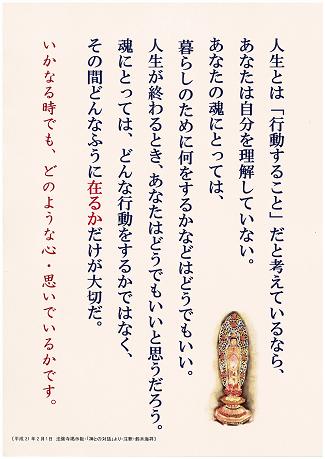 人生とは「行動すること」だと考えているなら、
あなたは自分を理解していない。
あなたの魂にとっては、
暮らしのために何をするかなどはどうでもいい。
人生が終わるとき、あなたはどうでもいいと思うだろう。
魂にとっては、どんな行動をするかではなく、
その間どんなふうに在るかだけが大切だ。
いかなる時でも、どのような心・思いでいるかです。